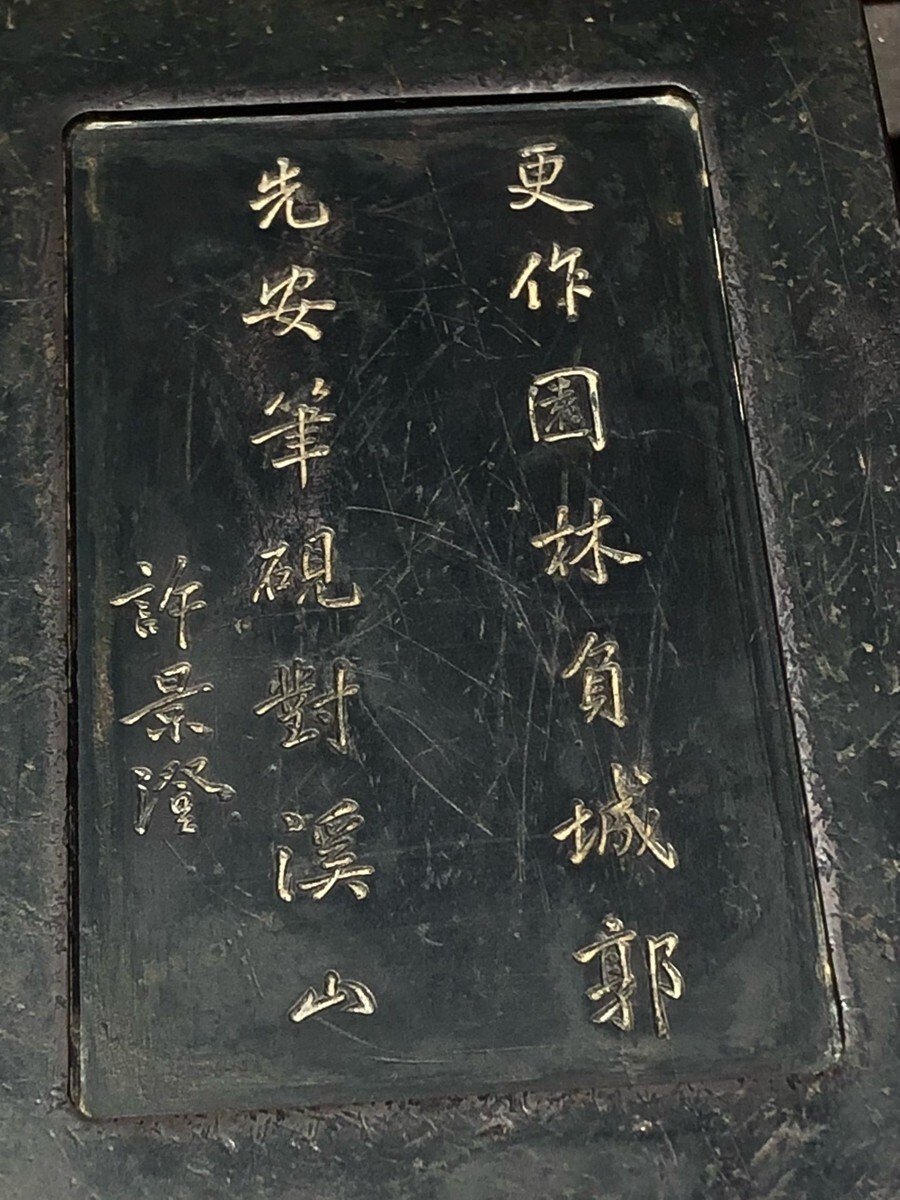 更作園林負城郭
先安筆硯對溪山
許景澄